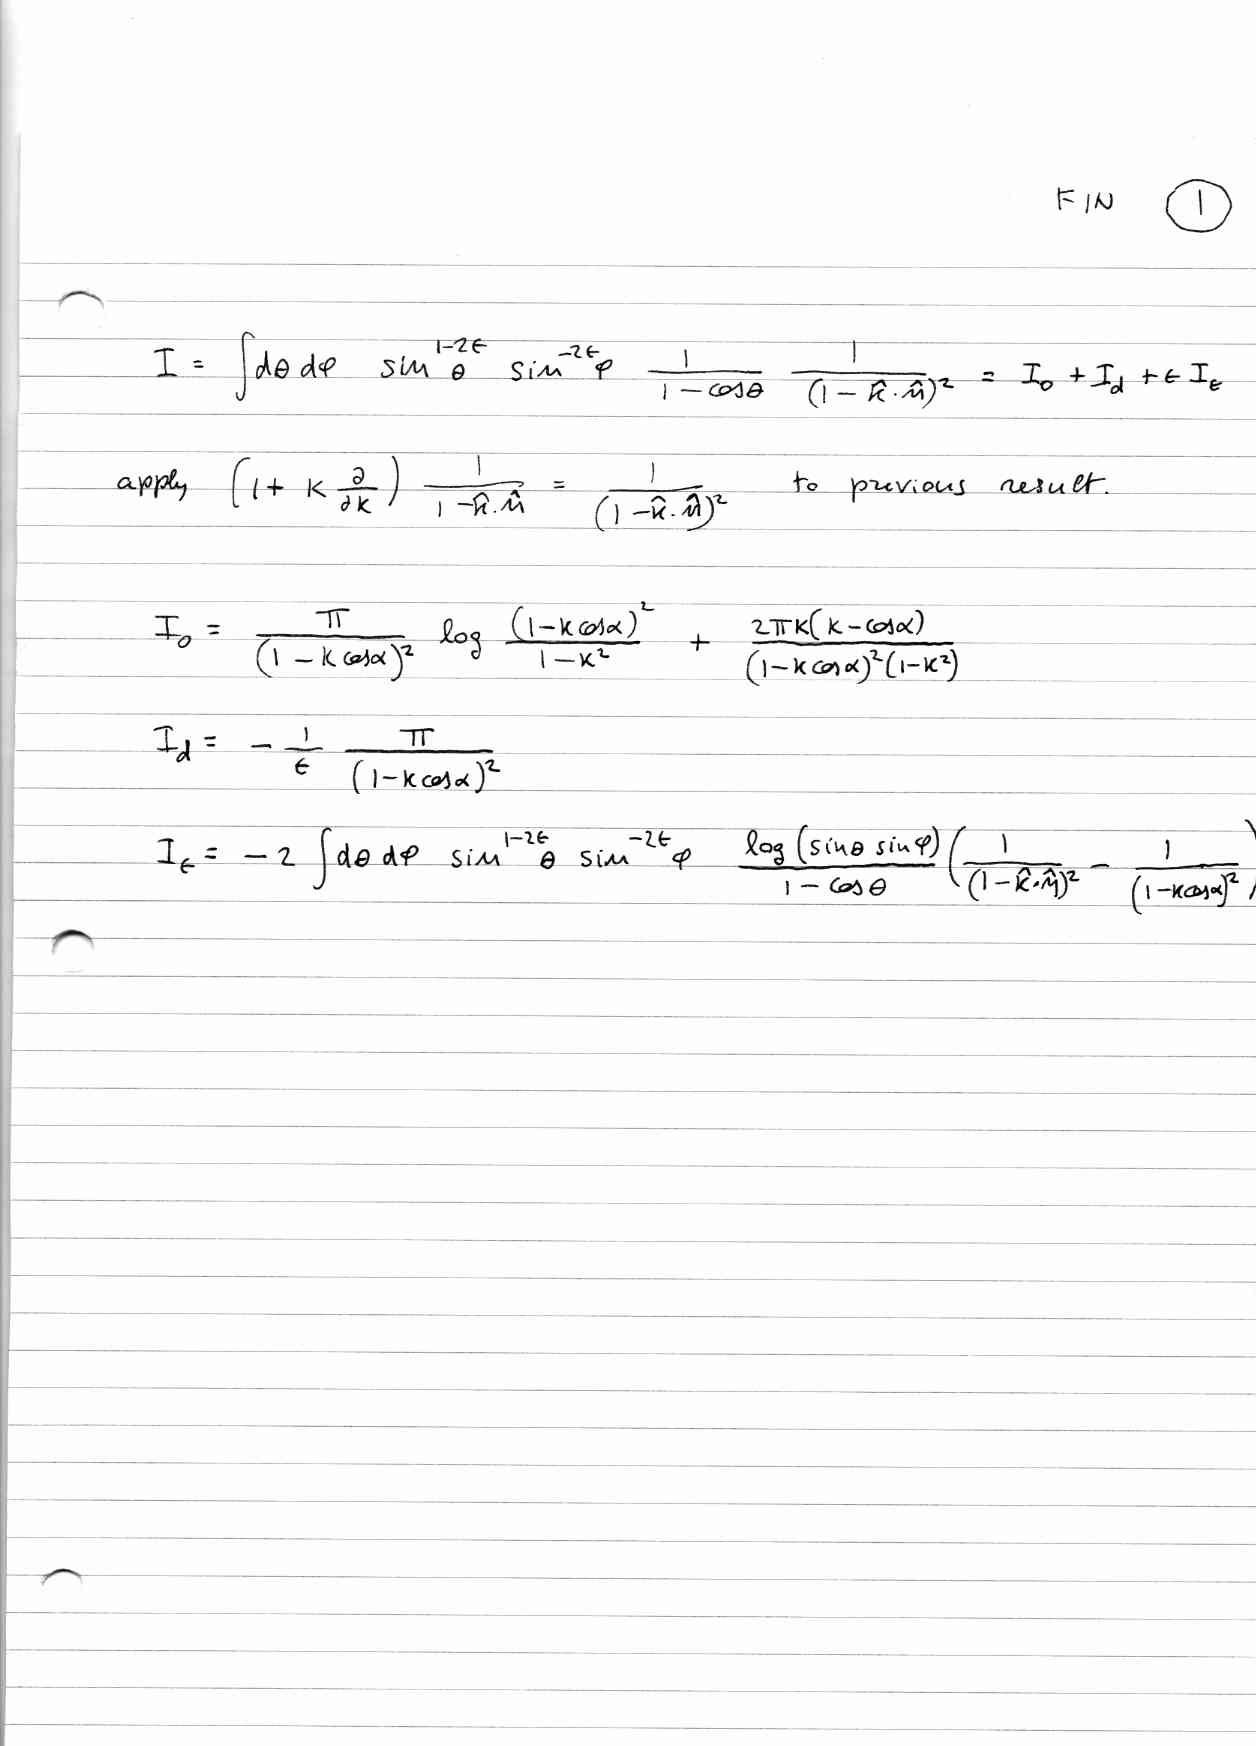 FIN 1
I = ∫dθ dφ sin^{1-2ϵ}θ sin^{-2ϵ}φ 1/(1-cosθ) 1/(1-k̂·n̂)² = I₀ + I_d + ϵ I_ϵ
apply (1 + k ∂/∂k) 1/(1-k̂·n̂) = 1/(1-k̂·n̂)² to previous result.
I₀ = π/(1-k cosα)² log (1-k cosα)²/(1-k²) + 2πk(k-cosα)/((1-k cosα)²(1-k²))
I_d = - 1/ϵ π/(1-k cosα)²
I_ϵ = -2 ∫dθ dφ sin^{1-2ϵ}θ sin^{-2ϵ}φ log(sinθ sinφ)/(1-cosθ) (1/(1-k̂·n̂)² - 1/(1-k cosα)²)